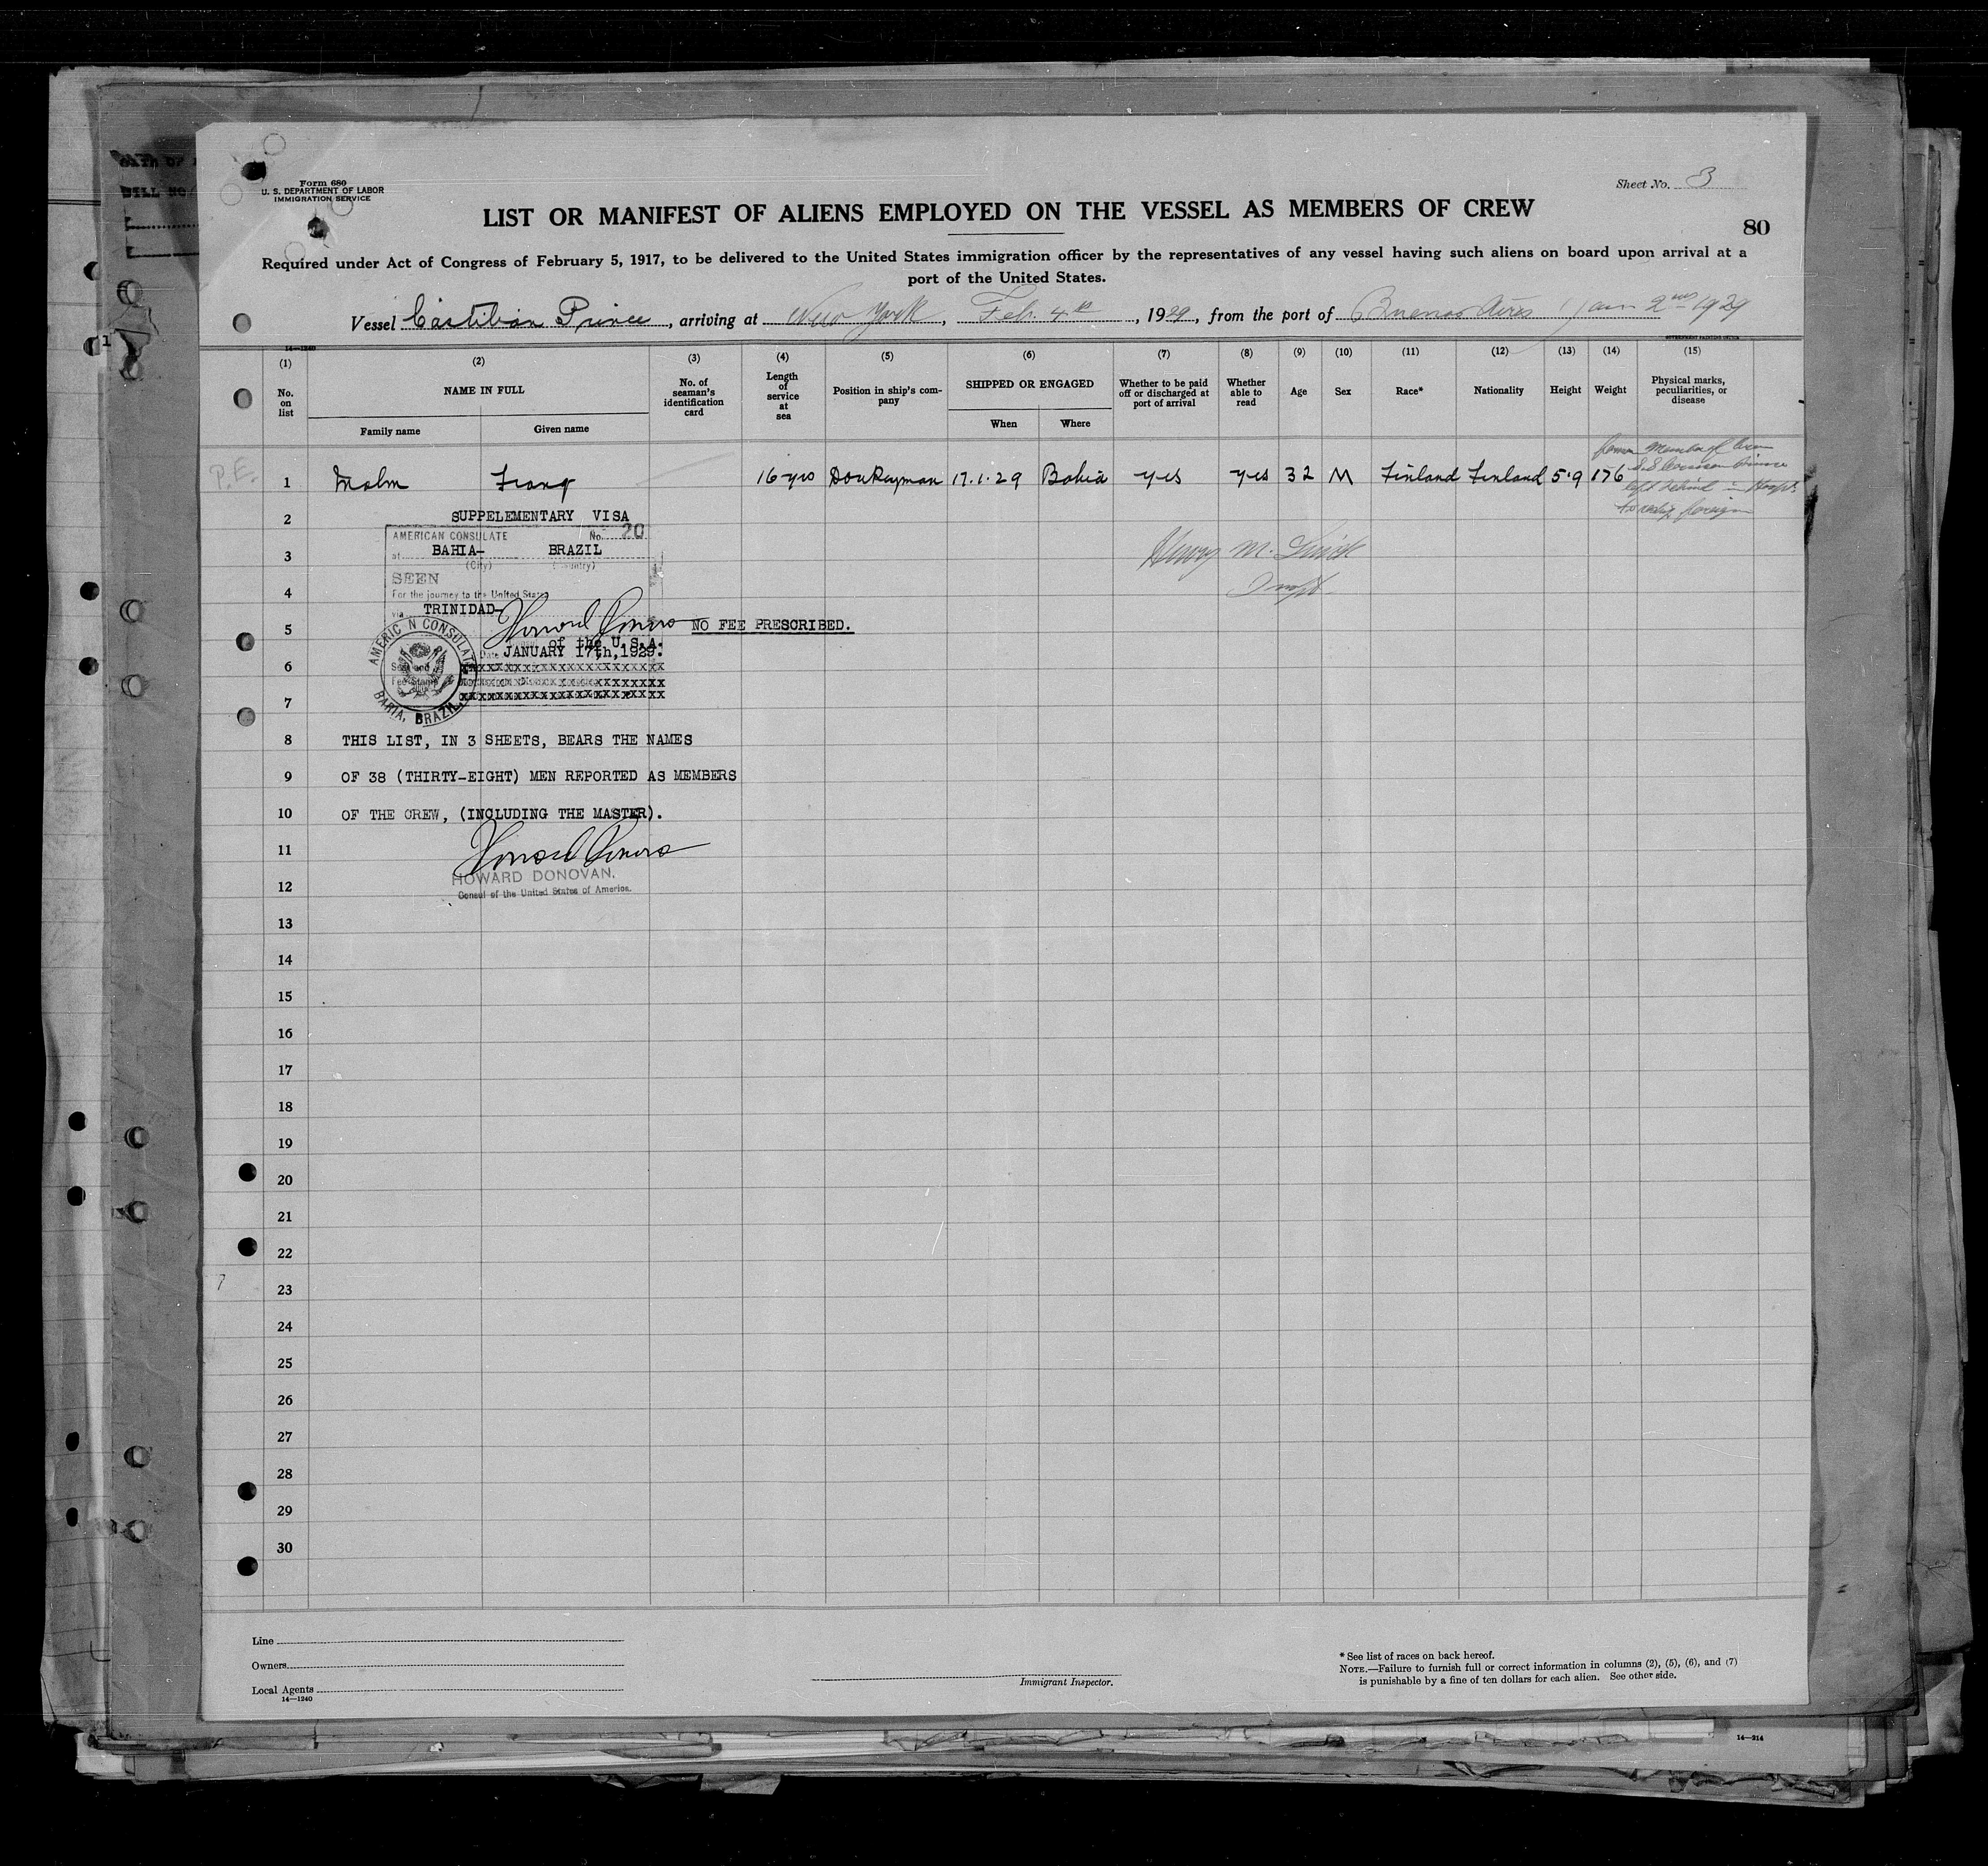 Form 680
U. S. DEPARTMENT OF LABOR
IMMIGRATION SERVICE
Sheet No. 3
LIST OR MANIFEST OF ALIENS EMPLOYED ON THE VESSEL AS MEMBERS OF CREW
80
Required under Act of Congress of February 5, 1917, to be delivered to the United States immigration officer by the representatives of any vessel having such aliens on board upon arrival at a
port of the United States.
Vessel Castilian Prince, arriving at New York, Feb. 4th, 1929, from the port of Buenos Aires Jan 2nd 1929
14—1240
(1) (2) (3) (4) (5) (6) (7) (8) (9) (10) (11) (12) (13) (14) (15)
No. on list
NAME IN FULL
Family name
Given name
No. of seaman's identification card
Length of service at sea
Position in ship's company
SHIPPED OR ENGAGED
When
Where
Whether to be paid off or discharged at port of arrival
Whether able to read
Age
Sex
Race*
Nationality
Height
Weight
Physical marks, peculiarities, or disease
P.E.
1 Malm Franz 16 yrs Donkeyman 17.1.29 Bahia yes yes 32 M Finland Finland 5'9 176
former Member of Crew
S.S. Prince
left behind in Hospt.
to reship foreign
2 SUPPELEMENTARY VISA
AMERICAN CONSULATE No. 20
3 at BAHIA- BRAZIL
(City) (Country)
Henry M.
SEEN
4 For the journey to the United States
Inspt.
via TRINIDAD-
5 NO FEE PRESCRIBED.
of the U.S.A.
Date JANUARY 17th, 1929.
AMERICAN CONSULATE
BAHIA, BRAZIL
Seal and
Fee Stamp
6
7
8 THIS LIST, IN 3 SHEETS, BEARS THE NAMES
9 OF 38 (THIRTY-EIGHT) MEN REPORTED AS MEMBERS
10 OF THE CREW, (INCLUDING THE MASTER).
11 Howard Donovan
12 HOWARD DONOVAN.
Consul of the United States of America.
13
14
15
16
17
18
19
20
21
22
23
24
25
26
27
28
29
30
Line
Owners
Local Agents
14—1240
Immigrant Inspector.
* See list of races on back hereof.
NOTE.—Failure to furnish full or correct information in columns (2), (5), (6), and (7)
is punishable by a fine of ten dollars for each alien. See other side.
14—214